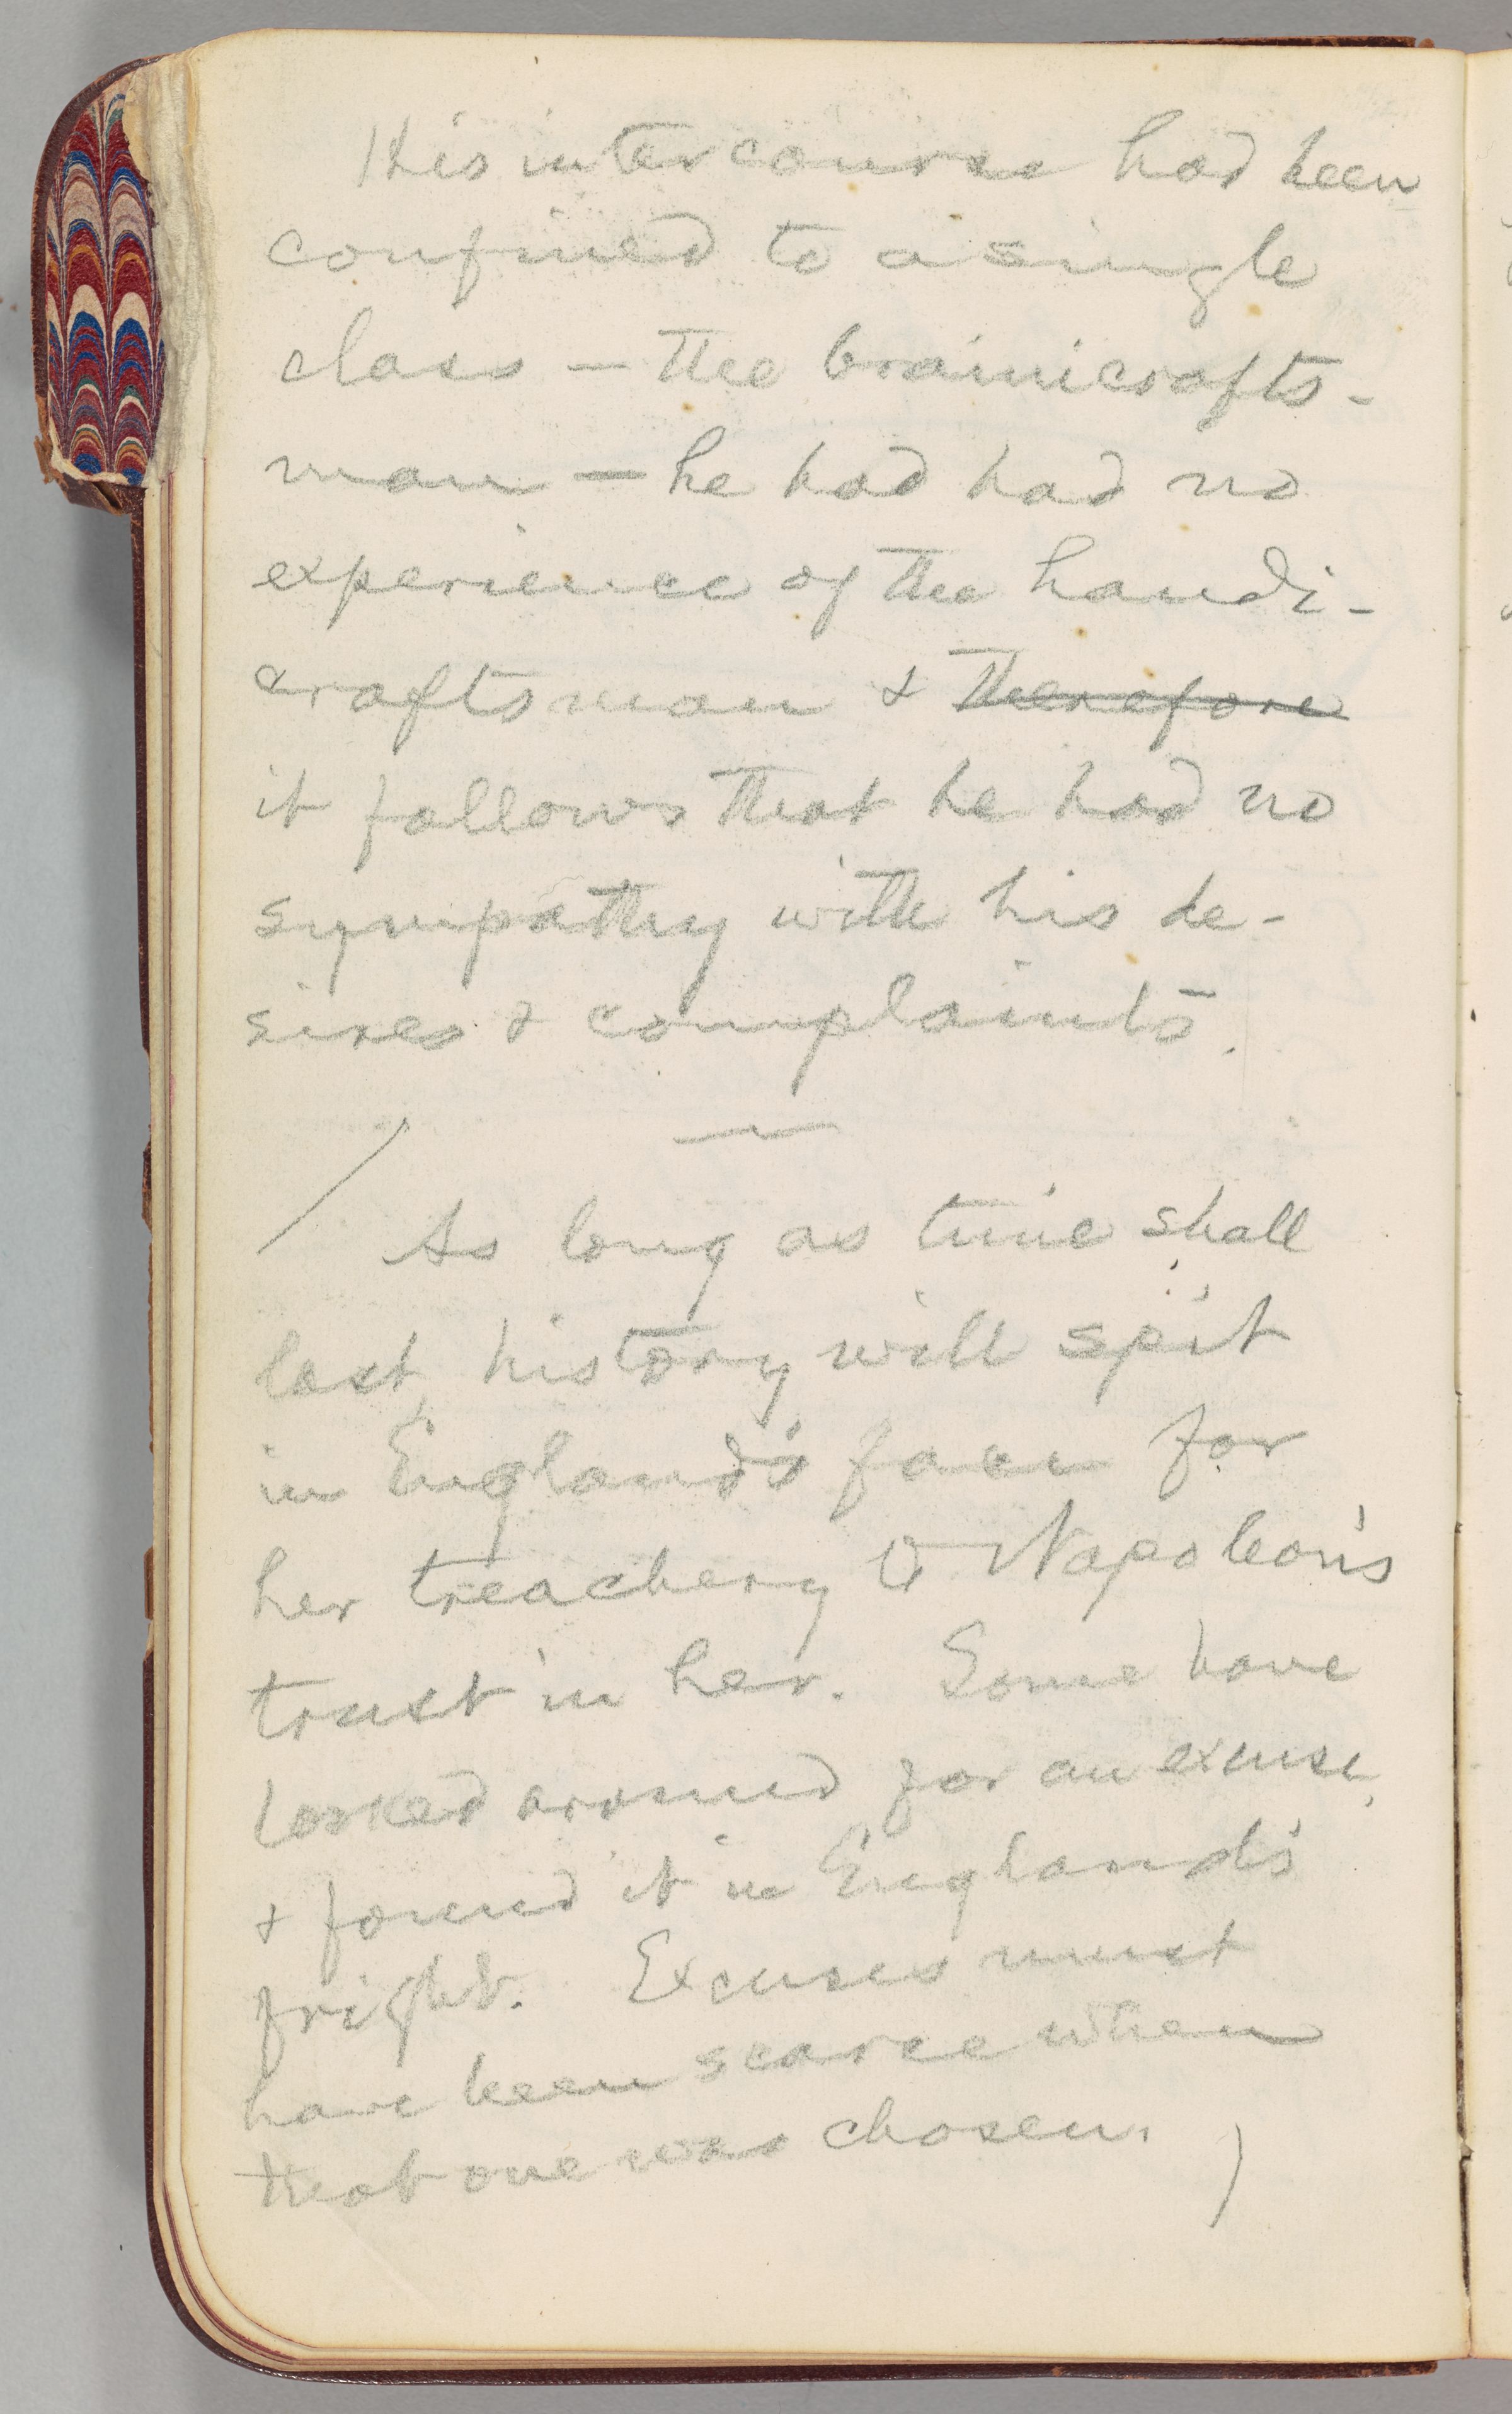 His intercourse had been
confined to a single
class — the brainicrafts-
man — he had had no
experience of the handi-
craftsman & therefore
it follows that he had no
sympathy with his de-
sires & complaints.
—
/ As long as time shall
last, history will spit
in England's face for
her treachery to Napoleon's
trust in her. Some have
looked around for an excuse,
& found it in England's
fright. Excuses must
have been scarce when
that one was chosen. )